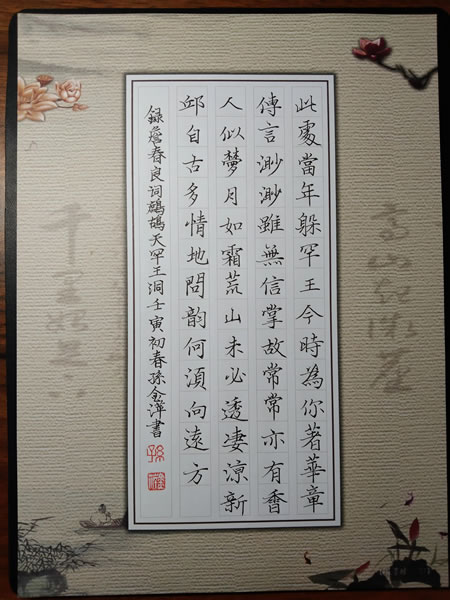 此處當年躲罕王今時為你著華章
傳言渺渺雖無信掌故常常亦有香
人似夢月如霜荒山未必透淒涼新
邱自古多情地問韵何須向遠方
録詹春良词鷓鴣天罕王洞壬寅初春孫金萍書